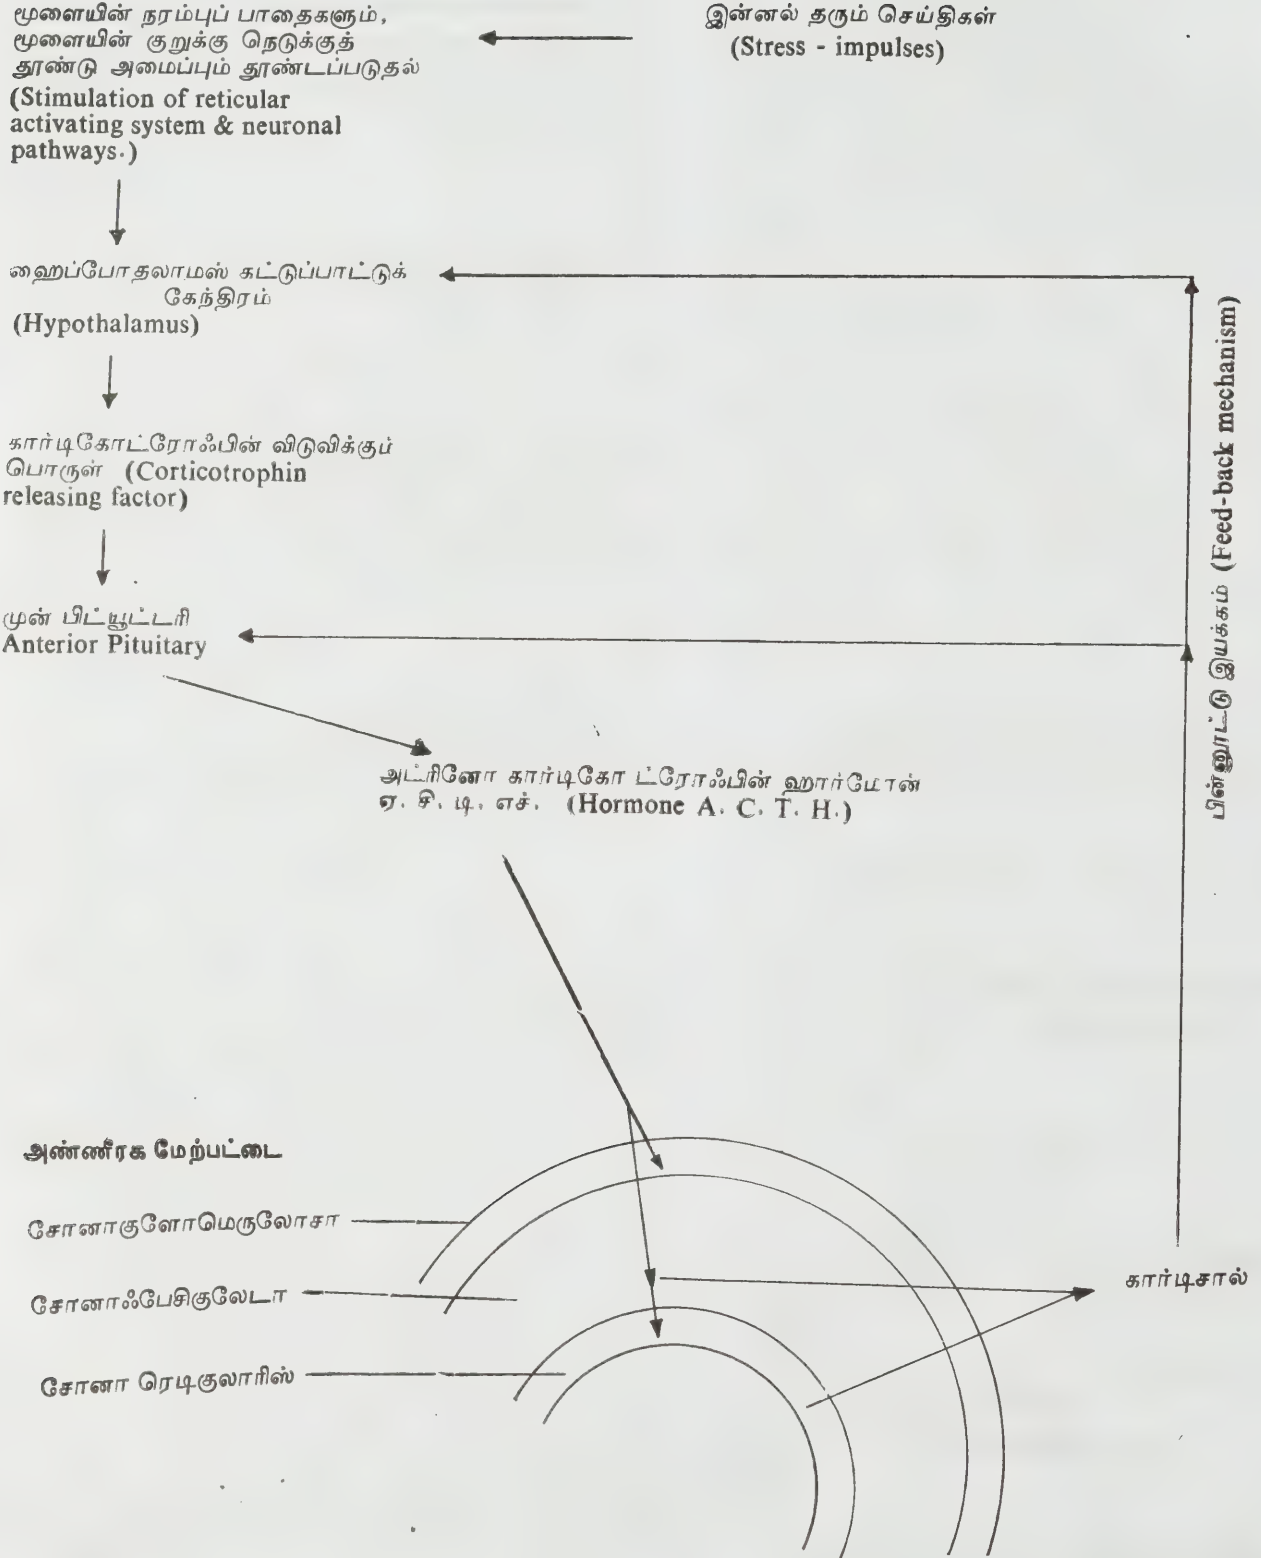 மூளையின் நரம்புப் பாதைகளும்,
மூளையின் குறுக்கு நெடுக்குத்
தூண்டு அமைப்பும் தூண்டப்படுதல்
(Stimulation of reticular
activating system & neuronal
pathways.)
இன்னல் தரும் செய்திகள்
(Stress - impulses)
ஹைப்போதலாமஸ் கட்டுப்பாட்டுக்
கேந்திரம்
(Hypothalamus)
கார்டிகோட்ரோஃபின் விடுவிக்கும்
பொருள் (Corticotrophin
releasing factor)
முன் பிட்யூட்டரி
Anterior Pituitary
பின்னூட்டு இயக்கம் (Feed-back mechanism)
அட்ரினோ கார்டிகோ ட்ரோஃபின் ஹார்மோன்
ஏ. சி. டி. எச். (Hormone A. C. T. H.)
அண்ணீரக மேற்பட்டை
சோனாகுளோமெருலோசா
சோனாஃபேசிகுலேடா
சோனா ரெடிகுலாரிஸ்
கார்டிசால்